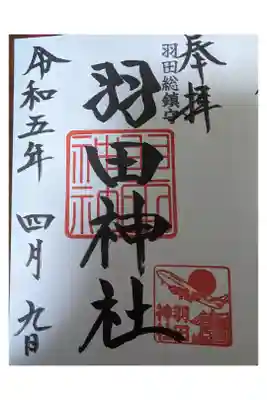 奉拝
羽田総鎮守
羽田神社
令和五年 四月 九日
羽田
神社